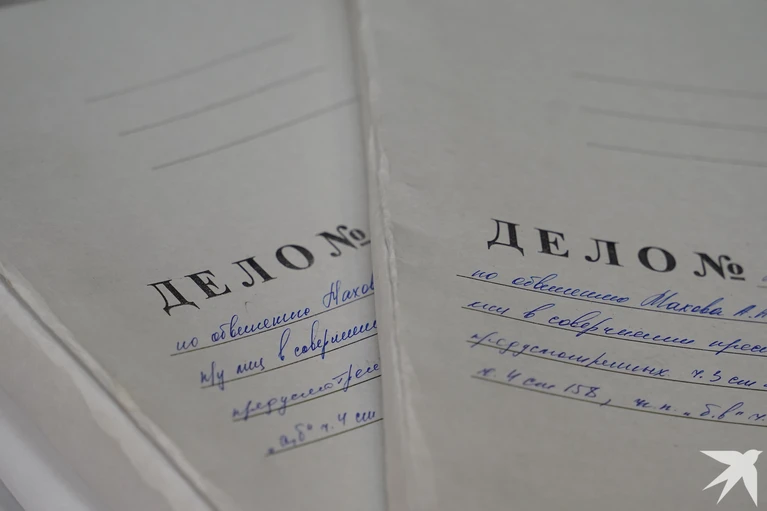 ДЕЛО №
по обвинению Махов
п/у лиц в совершени
предусмотрен
"а,б" ч. 4 ст
ДЕЛО №
по обвинению Махова А.А
лиц в совершении прес
предусмотренных ч. 3 ст
ч. 4 ст 158, п.п. "б.в" ч.